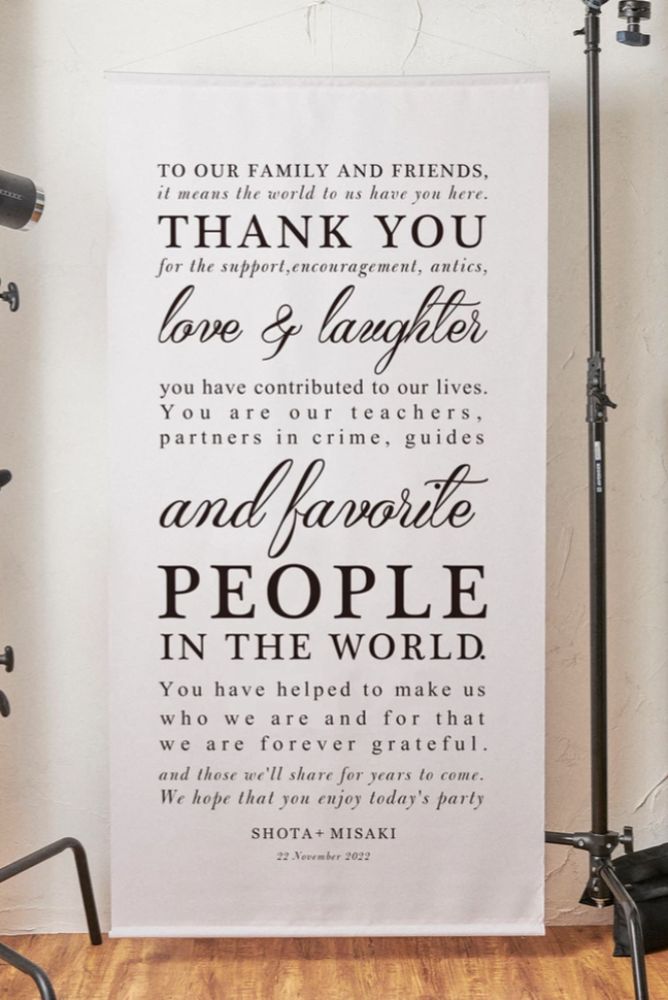 TO OUR FAMILY AND FRIENDS,
it means the world to us have you here.
THANK YOU
for the support,encouragement, antics,
love & laughter
you have contributed to our lives.
You are our teachers,
partners in crime, guides
and favorite
PEOPLE
IN THE WORLD.
You have helped to make us
who we are and for that
we are forever grateful.
and those we'll share for years to come.
We hope that you enjoy today's party
SHOTA+ MISAKI
22 November 2022